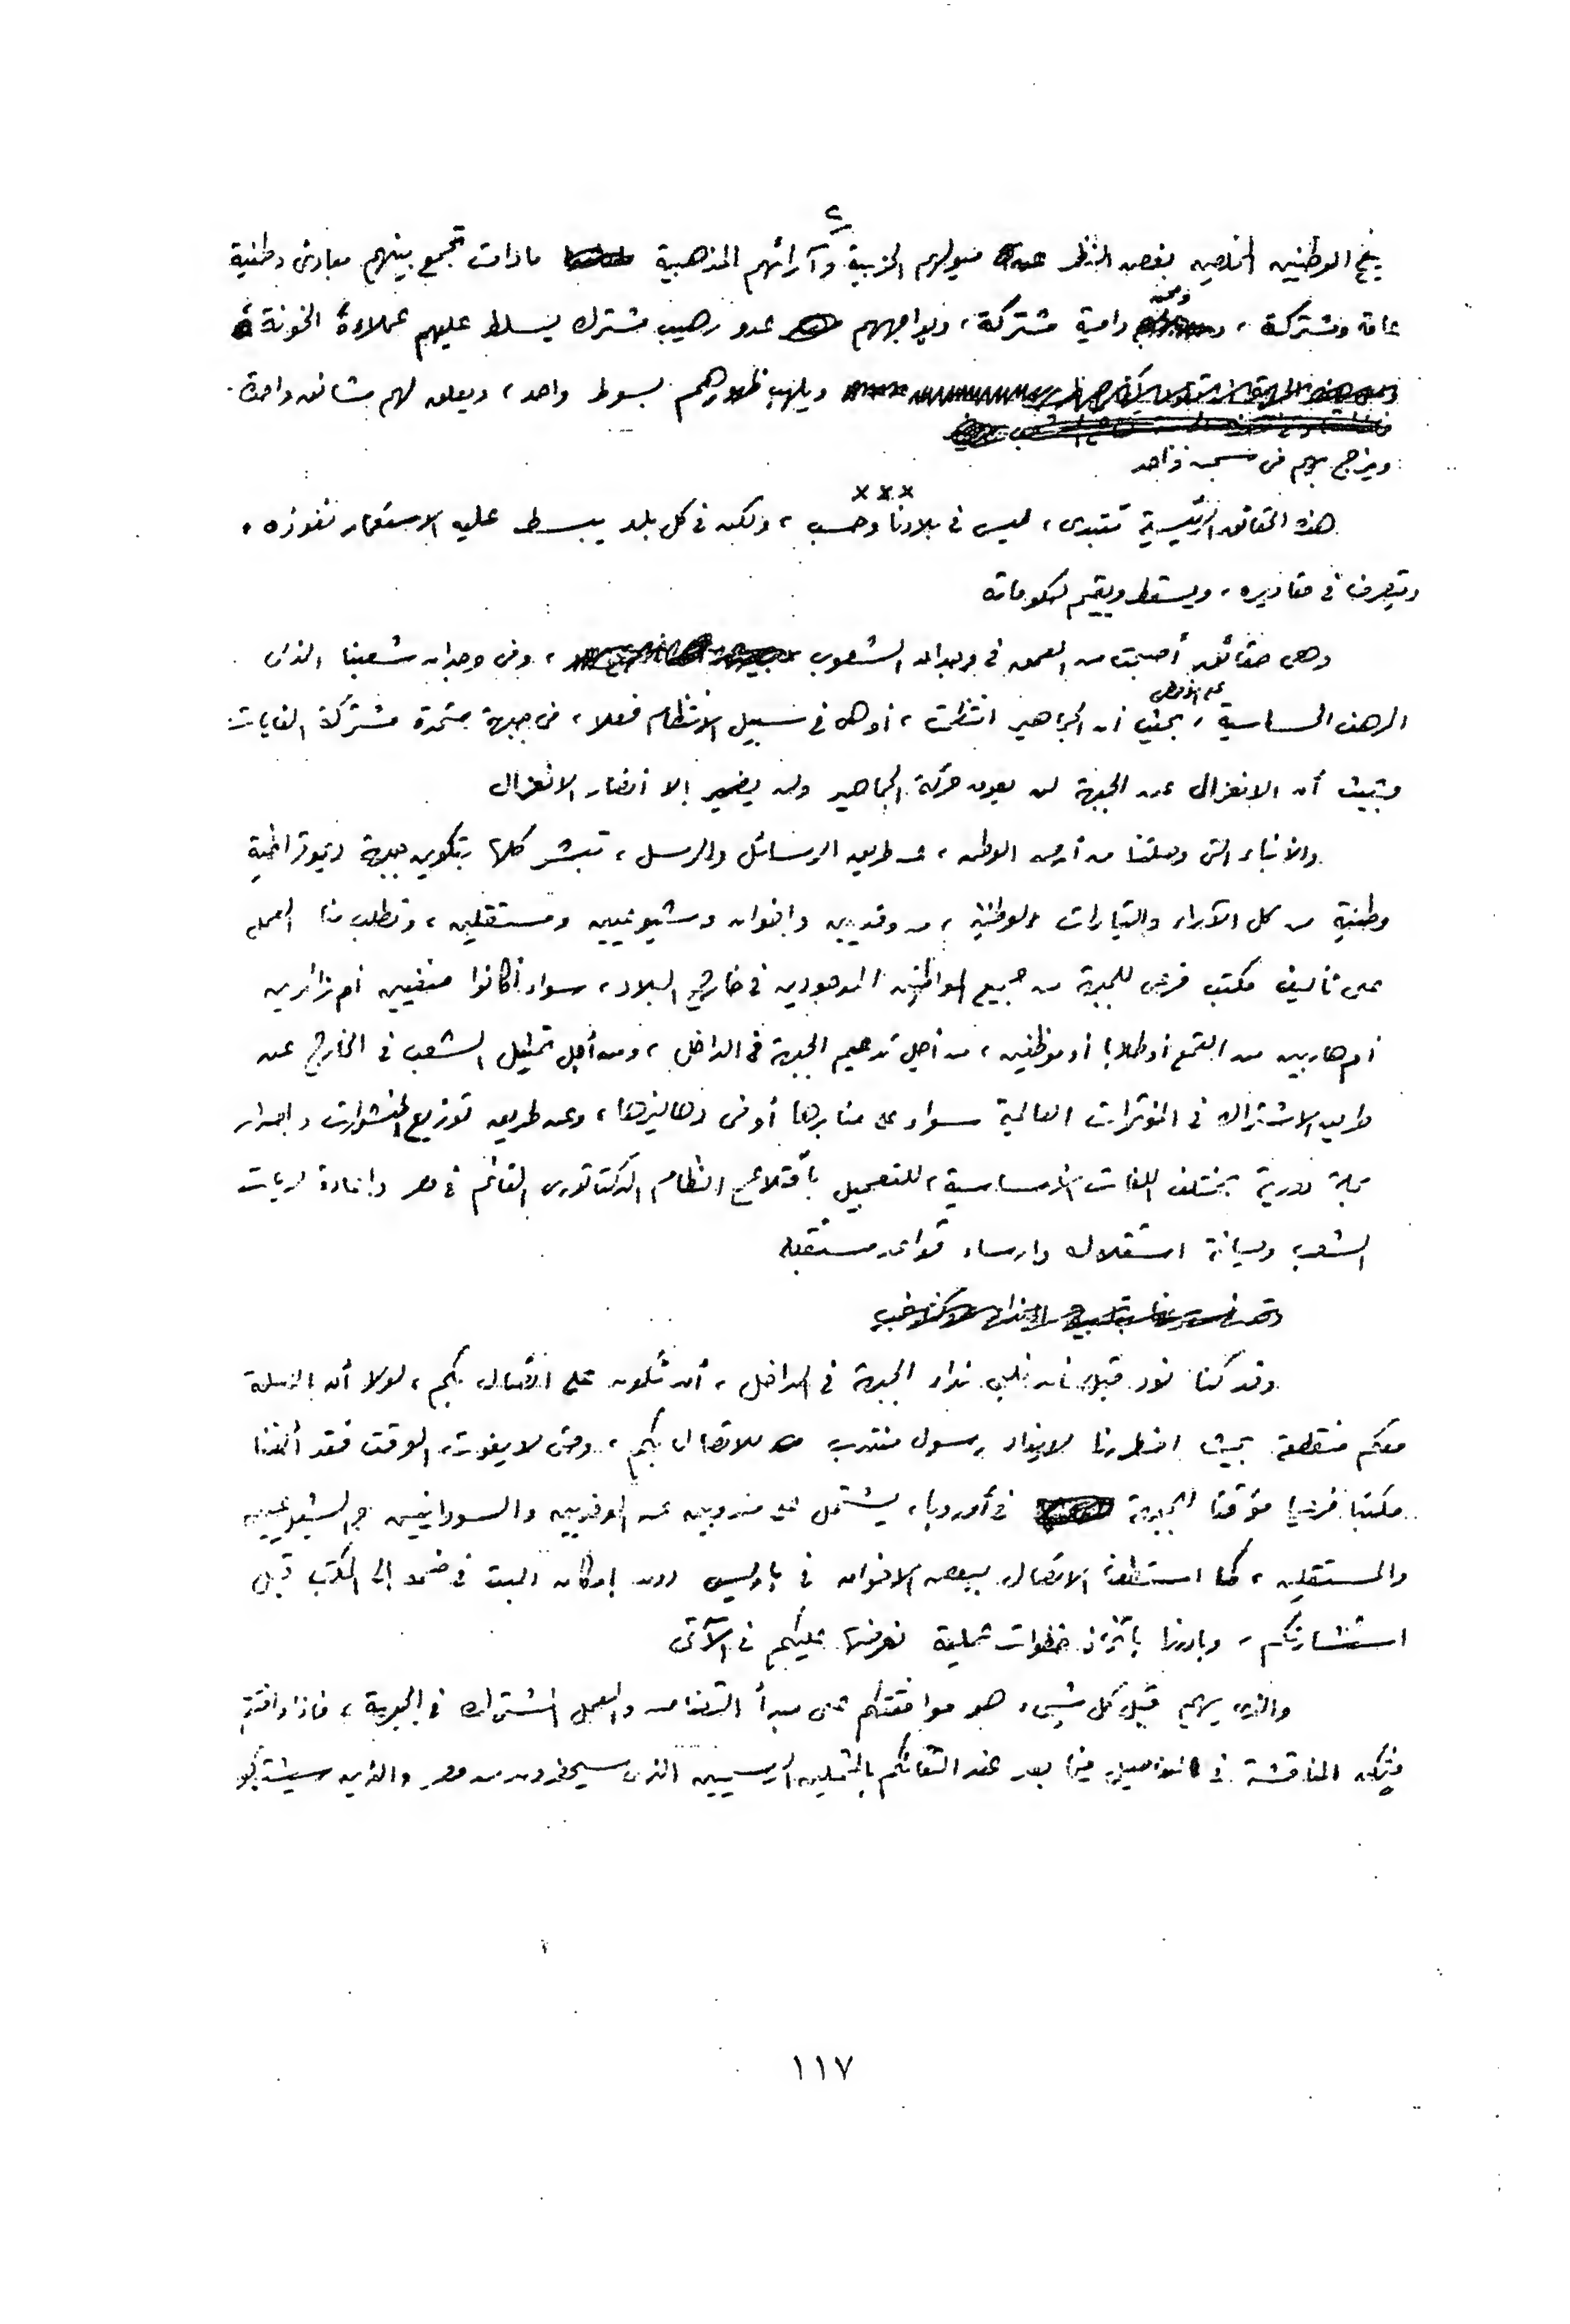 ٢
جميع الوطنيين المخلصين بغض النظر عن ميولهم الحزبية وآرائهم المذهبية مادامت تجمع بينهم مبادئ وطنية
عامة ومشتركة، ومحن دامية مشتركة، ويواجههم عدو رهيب مشترك يسلط عليهم عملاءه الخونة
ويلهب ظهورهم بسوط واحد، ويعلق لهم مشانق واحدة.
ويزج بهم في سجن واحد
× × ×
هذه الحقائق الرئيسية تتبدى، ليس في بلادنا وحسب، ولكن في كل بلد يبسط عليه الاستعمار نفوذه،
ويتصرف في مقاديره، ويسقط ويقيم حكوماته
وهى حقائق أصبحت من العمق في وجدان الشعوب، وفى وجدان شعبنا الذكى
المرهف الحساسية على الأخص، بحيث أن الجماهير انتظمت، أو هى في سبيل الانتظام فعلا، فى جبهة متحدة مشتركة الغايات
وبحيث أن الانعزال عن الجبهة لن يعوق حركة الجماهير ولن يضير إلا أنصار الانعزال
والأنباء التى وصلتنا من أرض الوطن، عن طريق الرسائل والرسل، تبشر كلها بتكوين جبهة ديموقراطية
وطنية من كل الآراء والتيارات الوطنية، من وفديين واخوان وشيوعيين ومستقلين، وتطلب منا العمل
على تأليف مكتب فرعى للجبهة من جميع المواطنين الموجودين في خارج البلاد، سواء أكانوا منفيين أم زائرين
أم هاربين من القمع أو طلابا أو موظفين، من أجل تدعيم الجبهة فى الداخل، ومن أجل تمثيل الشعب في الخارج عن
طريق الاشتراك في المؤتمرات العالمية سواء على منابرها أو فى دهاليزها، وعن طريق توزيع المنشورات واصدار
مجلة دورية بمختلف اللغات الأساسية، للتعجيل بأقتلاع النظام الدكتاتورى القائم في مصر واعادة حريات
الشعب وصيانة استقلاله وارساء قواعد مستقبله
وقد كنا نود قبل أن نلبى نداء الجبهة في الداخل، أن نكون على اتصال بكم، لولا أن الصلة
معكم منقطعة بحيث اضطررنا لايفاد رسول منتدب للاتصال بكم، وحتى لا يفوت الوقت فقد ألفنا
مكتبا فرعيا مؤقتا للجبهة في أوروبا، يشتمل على مندوبين عن الوفديين والسودانيين والشيوعيين
والمستقلين، كما استطعنا الاتصال ببعض الاخوان في باريس دون إمكان البت في ضمه إلى المكتب قبل
استشارتكم، وبادرنا باتخاذ خطوات عملية نعرضها عليكم في الآتى
والذى يهم قبل كل شيء هو موافقتكم على مبدأ التضامن والعمل المشترك في الجبهة، فاذا وافقتم
فيمكن المناقشة في التفاصيل فيما بعد عند التقائكم بالممثلين الرسميين الذين سيحضرون من مصر والذين سيشتركو
١١٧